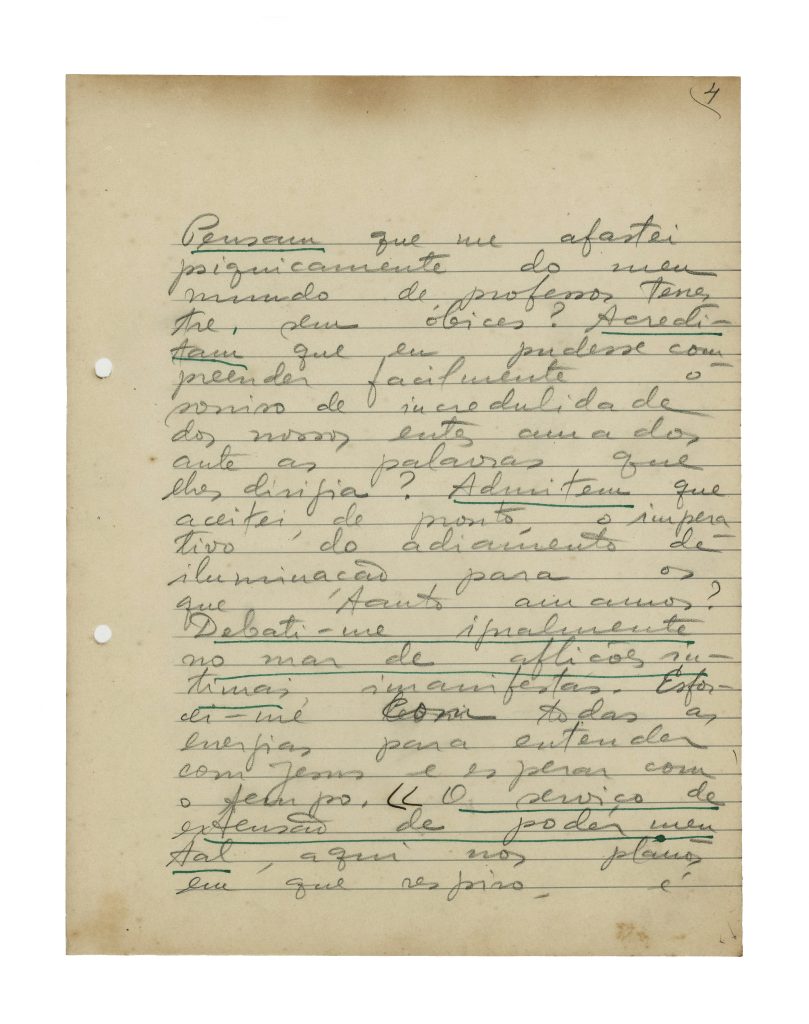 4
Pensam que me afastei
psiquicamente do meu
mundo de professor terres
tre, sem óbices? Acredi-
tam que eu pudesse com
preender facilmente o
sorriso de incredulidade
dos nossos entes amados
ante as palavras que
lhes dirigia? Admitem que
aceitei, de pronto, o impera
tivo do adiamento de
iluminação para os
que tanto amamos?
Debati-me igualmente
no mar de aflições ín-
timas, imanifestas. Esfor-
cei-me com todas as
energias para entender
com Jesus e esperar com
o tempo. << O serviço de
extensão do poder men
tal, aqui nos planos
em que respiro, é